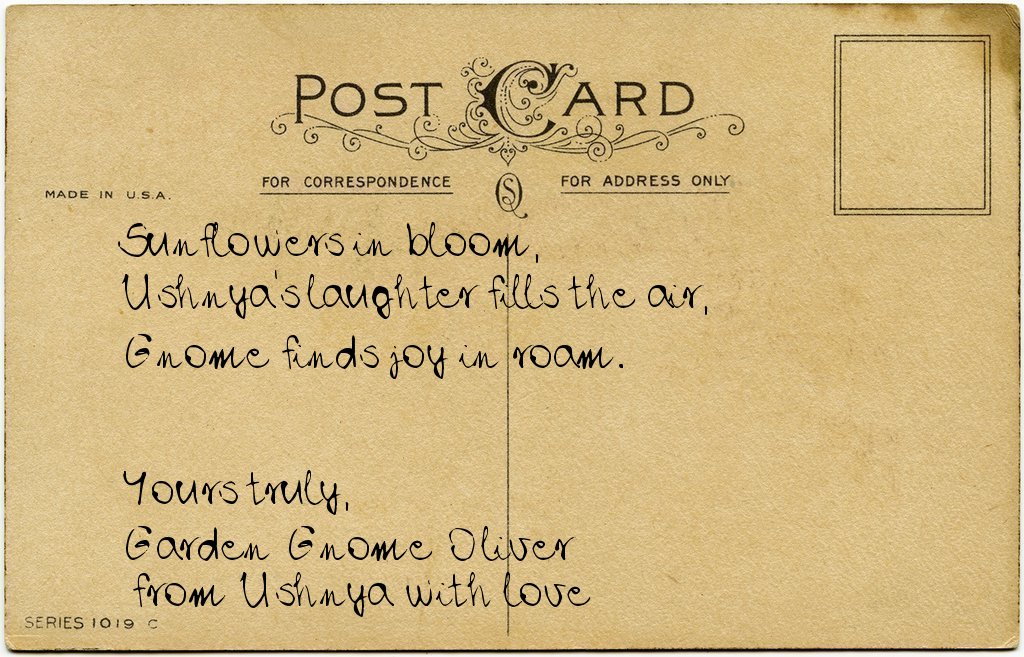 POST CARD
FOR CORRESPONDENCE
FOR ADDRESS ONLY
MADE IN U.S.A.
Sunflowers in bloom,
Ushnya's laughter fills the air,
Gnome finds joy in roam.
Yours truly,
Garden Gnome Oliver
from Ushnya with love
SERIES 1019 C